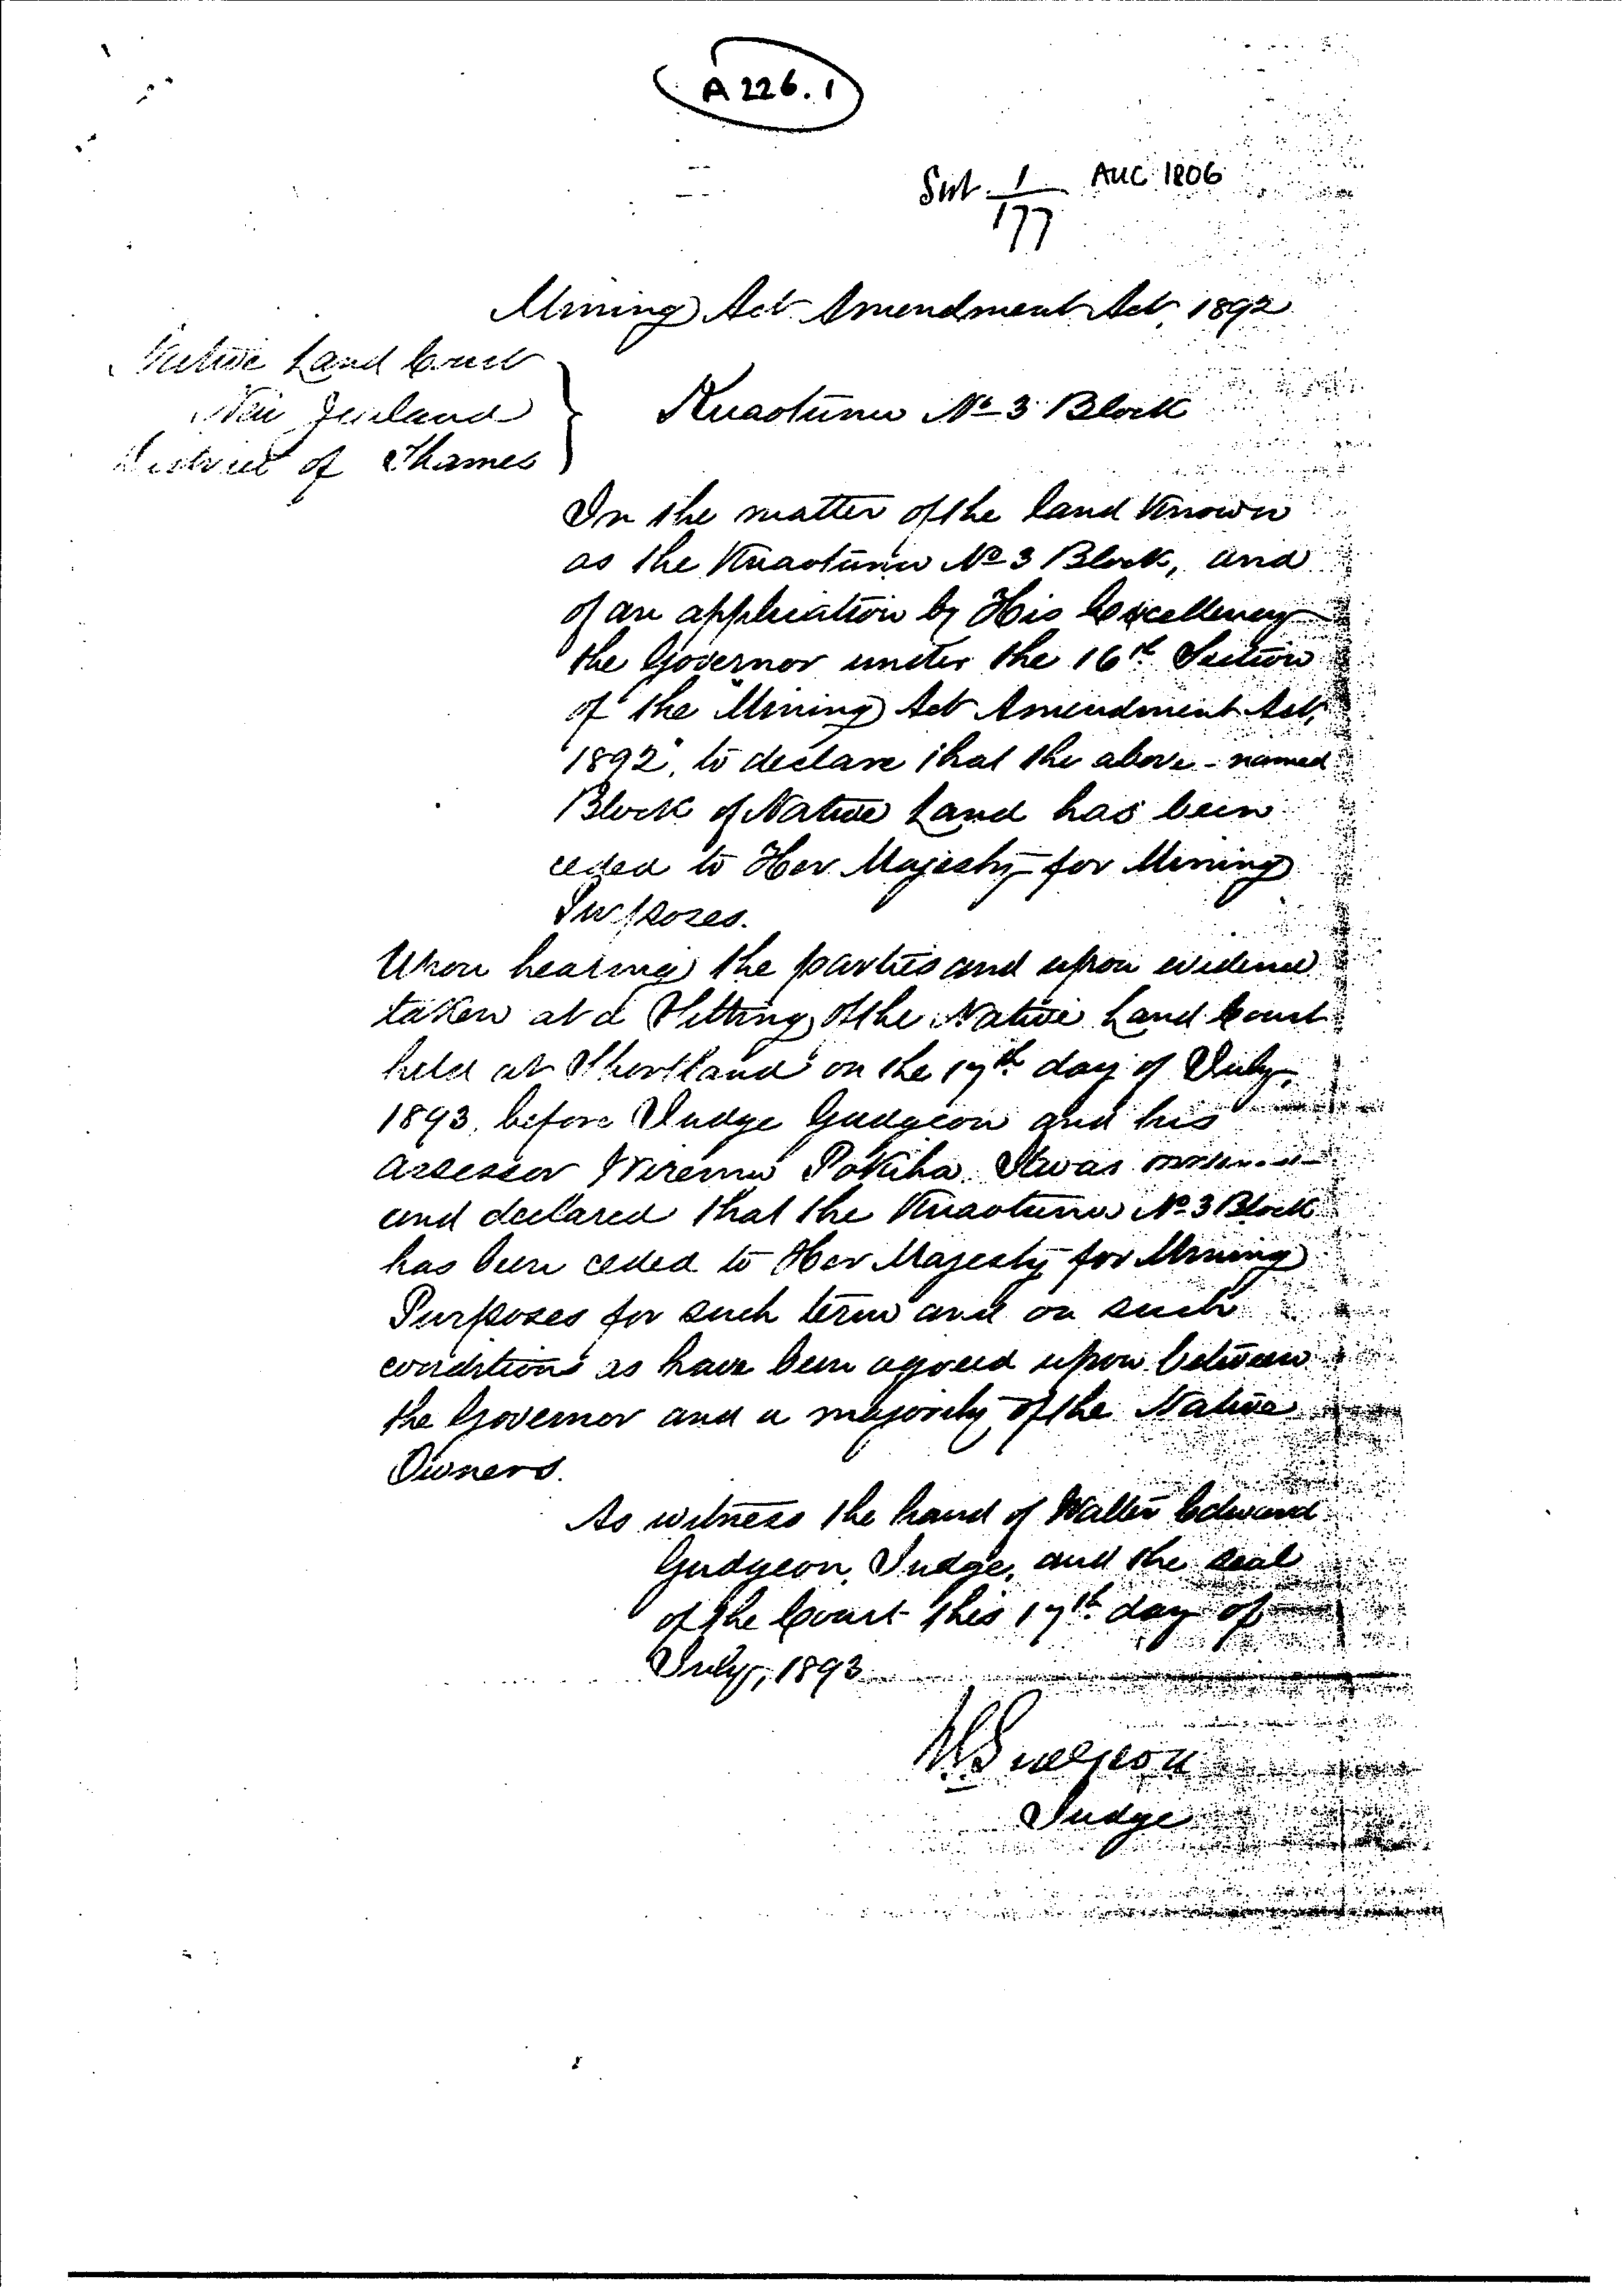 A 226.1
1
AUC 1806
177
Mining Act Amendment Act, 1892
Native Land Court
New Zealand
District of Thames
Kuaotunu No 3 Block
In the matter of the land known
as the Kuaotunu No 3 Block, and
of an application by His Excellency
the Governor under the 16th Section
of the "Mining Act Amendment Act,
1892", to declare that the above-named
Block of Native Land has been
ceded to Her Majesty for Mining
Purposes.
Upon hearing the parties and upon evidence
taken at a Sitting of the Native Land Court
held at Shortland on the 17th day of July,
1893, before Judge Gudgeon and his
assessor Wiremu Pokiha. It was
and declared that the Kuaotunu No 3 Block
has been ceded to Her Majesty for Mining
Purposes for such term and on such
conditions as have been agreed upon between
the Governor and a majority of the Native
Owners.
As witness the hand of Walter Edward
Gudgeon, Judge, and the seal
of the Court this 17th day of
July, 1893
W.E. Gudgeon
Judge